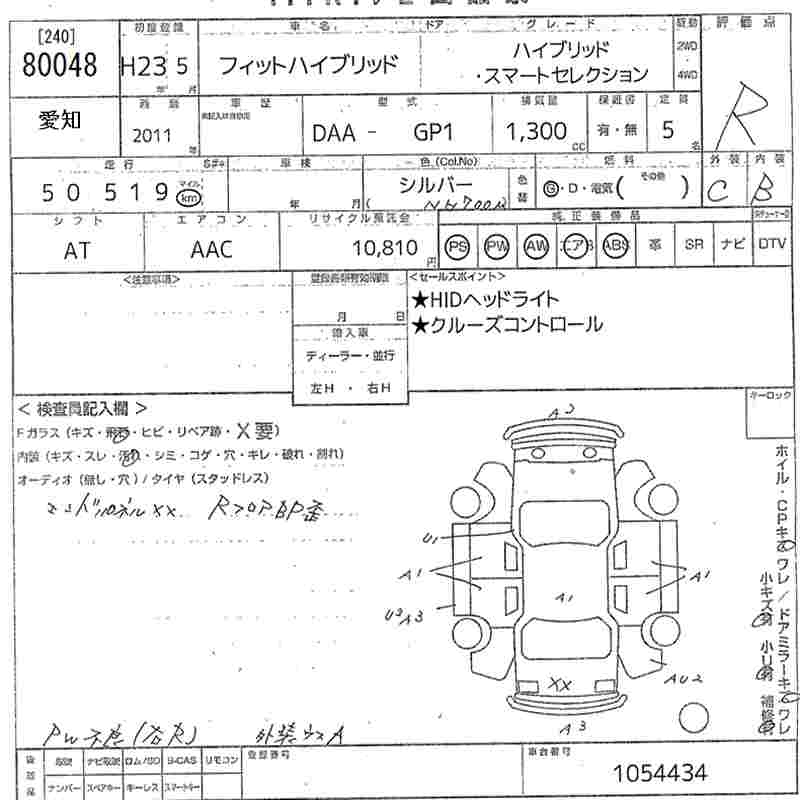 [240] 初度登録 車名 ドア グレード 駆動 評価点
80048 H23 5 フィットハイブリッド ハイブリッド 2WD
年 月 ・スマートセレクション 4WD
R
愛知 車歴 型式 排気量 保証書 定員
2011 年 DAA - GP1 1,300 CC 有・無 5 名
走行 車検 色(Col.No) 燃料 外装 内装
50 519 マイル km 年 月 ( シルバー 色替 G・D・電気( その他 ) C B
シフト エアコン リサイクル預託金 純正装備品
AT AAC 10,810 円 PS PW AW エアB ABS 革 SR ナビ DTV
<注意事項> 登録書類有効期限 <セールスポイント>
月 日 ★HIDヘッドライト
輸入車 ★クルーズコントロール
ディーラー・並行
左H ・ 右H
< 検査員記入欄 > キーロック
Fガラス (キズ・飛石・ヒビ・リペア跡・X要)
内装 (キズ・スレ・汚れ・シミ・コゲ・穴・キレ・破れ・割れ)
オーディオ (無し・穴) / タイヤ (スタッドレス)
XX
A3
U1
A1 A1
A1
U3 A3
AU2
XX
A3
ホイル・CPキズ ワレ / ドアミラーキズ ワレ
小キズ有 小凹有 補修有
登録番号 車台番号
取説 ナビ取説 ロム/SD B-CAS リモコン
ナンバー スペアキー キーレス スマートキー
1054434